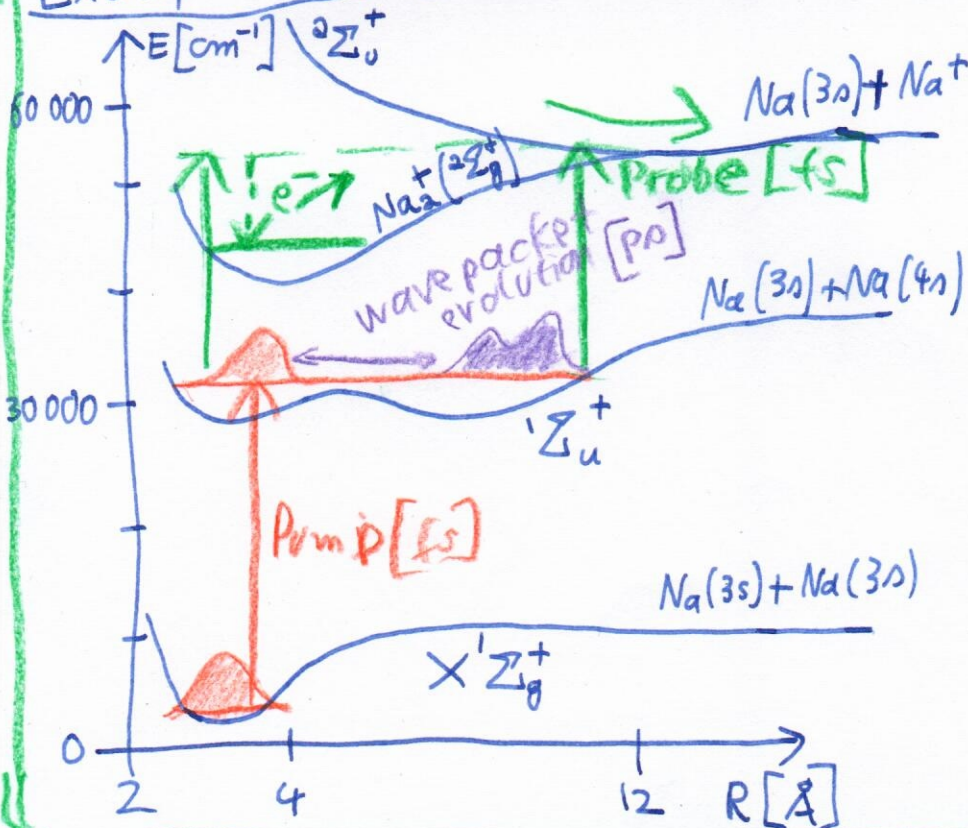 E[cm⁻¹]
²Σᵤ⁺
60 000
Na(3s)+Na⁺
e⁻
Na₂⁺(²Σg⁺)
Probe [fs]
wave packet
evolution [ps]
Na(3s)+Na(4s)
30000
¹Σᵤ⁺
Pump [fs]
Na(3s)+Na(3s)
X¹Σg⁺
0
2
4
12
R[Å]